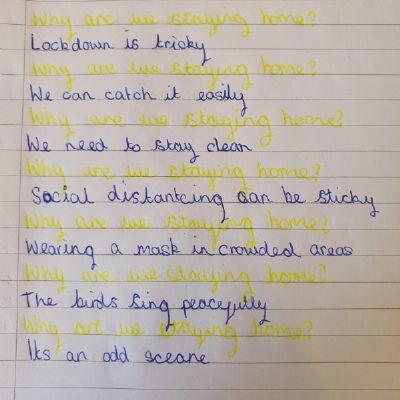 Why are we staying home?
Lockdown is tricky
Why are we staying home?
We can catch it easily
Why are we staying home?
We need to stay clean
Why are we staying home?
Social distantcing can be sticky
Why are we staying home?
Wearing a mask in crowded areas
Why are we staying home?
The birds sing peacefully
Why are we staying home?
Its an odd sceane